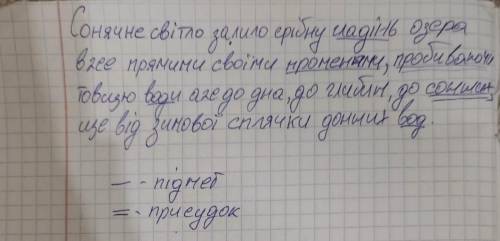 Сонячне світло залило срібну гладінь озера
вже прямими своїми променями, пробиваючи
товщу води аж до дна, до глибин, до сонних
ще від зимової сплячки донних вод.
— - підмет
= - присудок